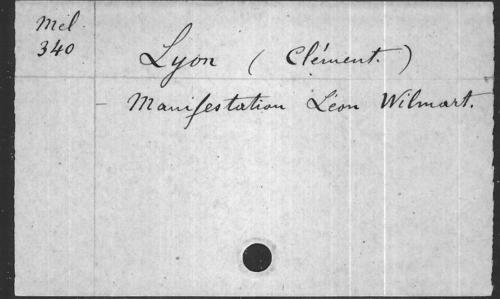 Mél.
340
Lyon (Clément.)
- Manifestation Léon Wilmart.